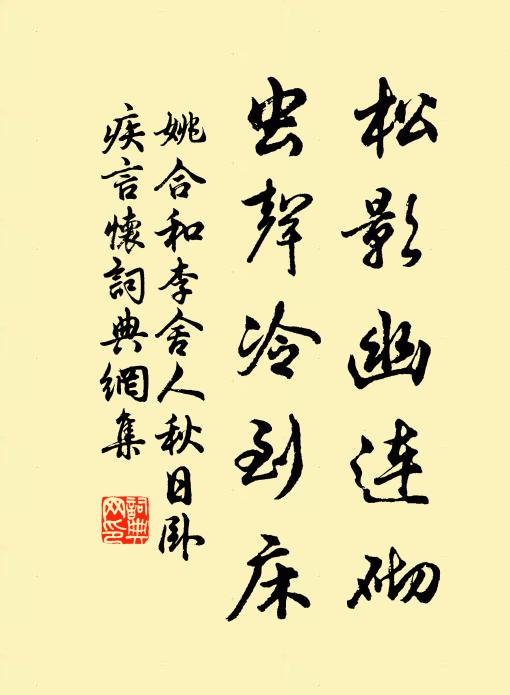 松影幽連砌
虫聲冷到床
姚合和李舍人秋日卧
疾言懷詞典網集
詞典网印